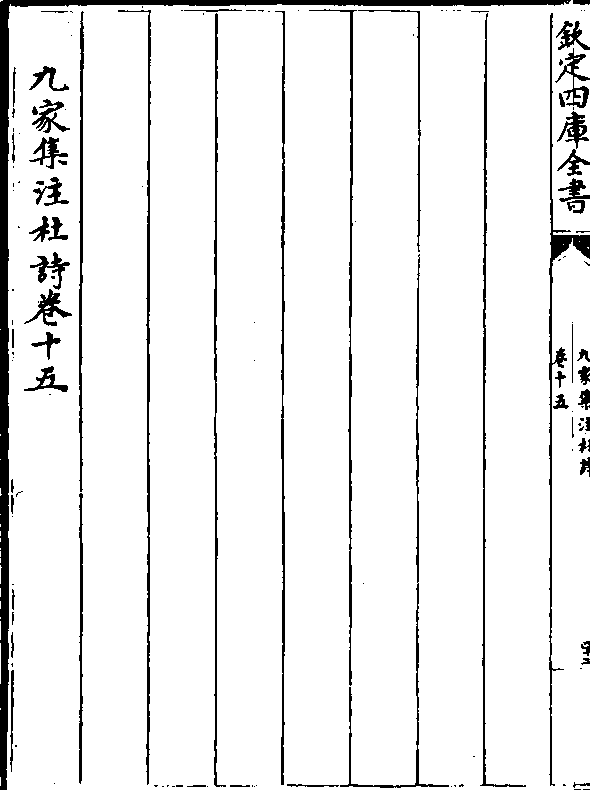 欽定四庫全書
九家集注杜詩
卷十五
九家集注杜詩卷十五